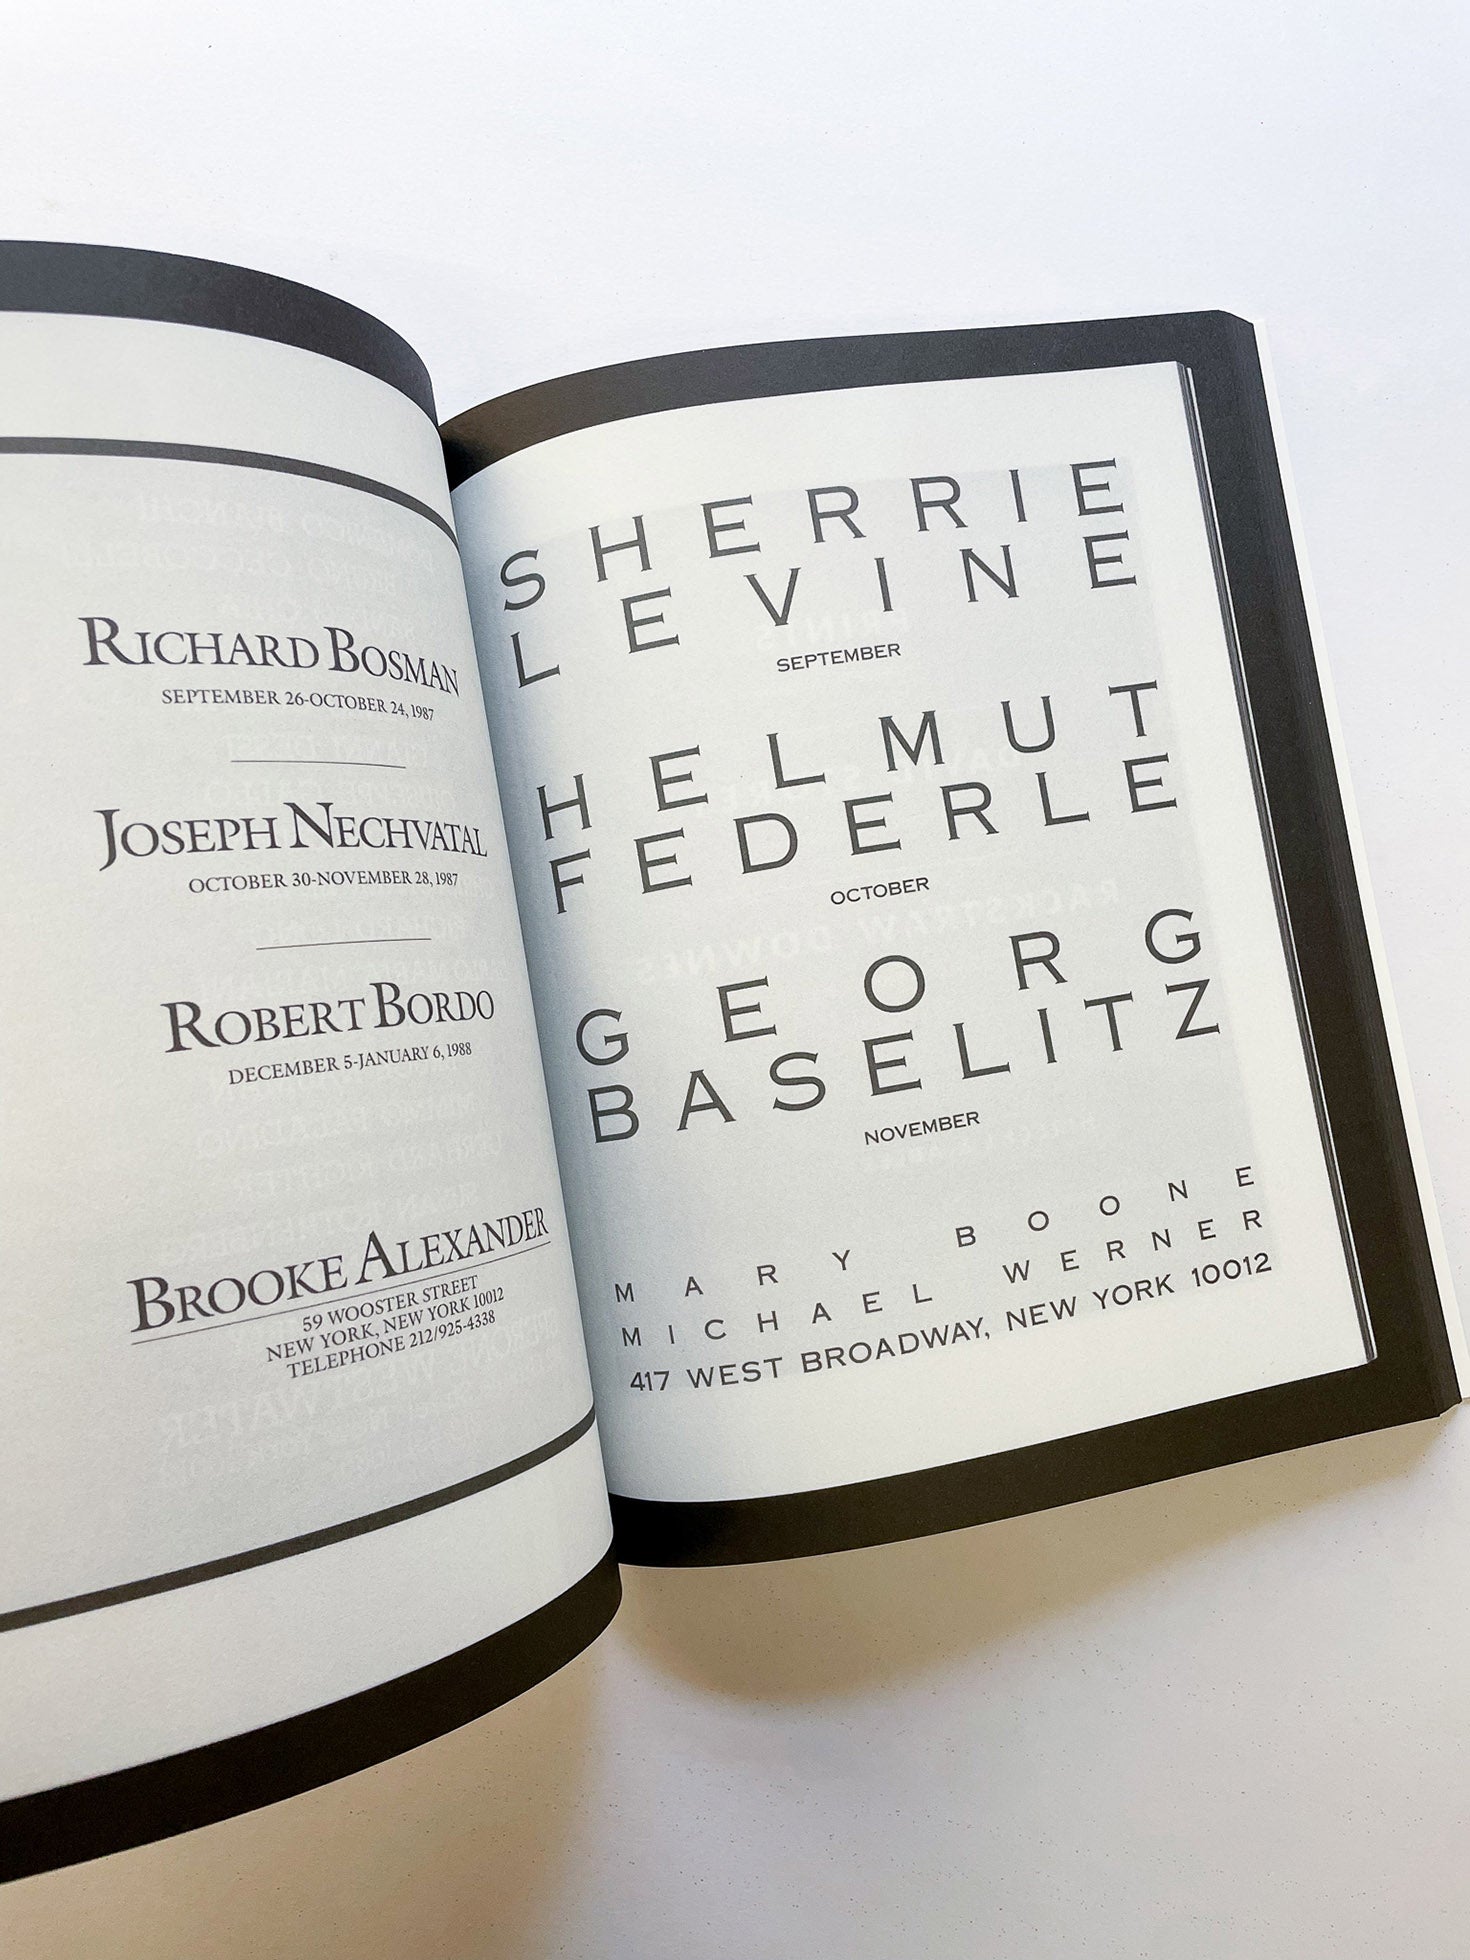 RICHARD BOSMAN
SEPTEMBER 26-OCTOBER 24, 1987
JOSEPH NECHVATAL
OCTOBER 30-NOVEMBER 28, 1987
ROBERT BORDO
DECEMBER 5-JANUARY 6, 1988
BROOKE ALEXANDER
59 WOOSTER STREET
NEW YORK, NEW YORK 10012
TELEPHONE 212/925-4338
SHERRIE
LEVINE
SEPTEMBER
HELMUT
FEDERLE
OCTOBER
GEORG
BASELITZ
NOVEMBER
MARY BOONE
MICHAEL WERNER
417 WEST BROADWAY, NEW YORK 10012